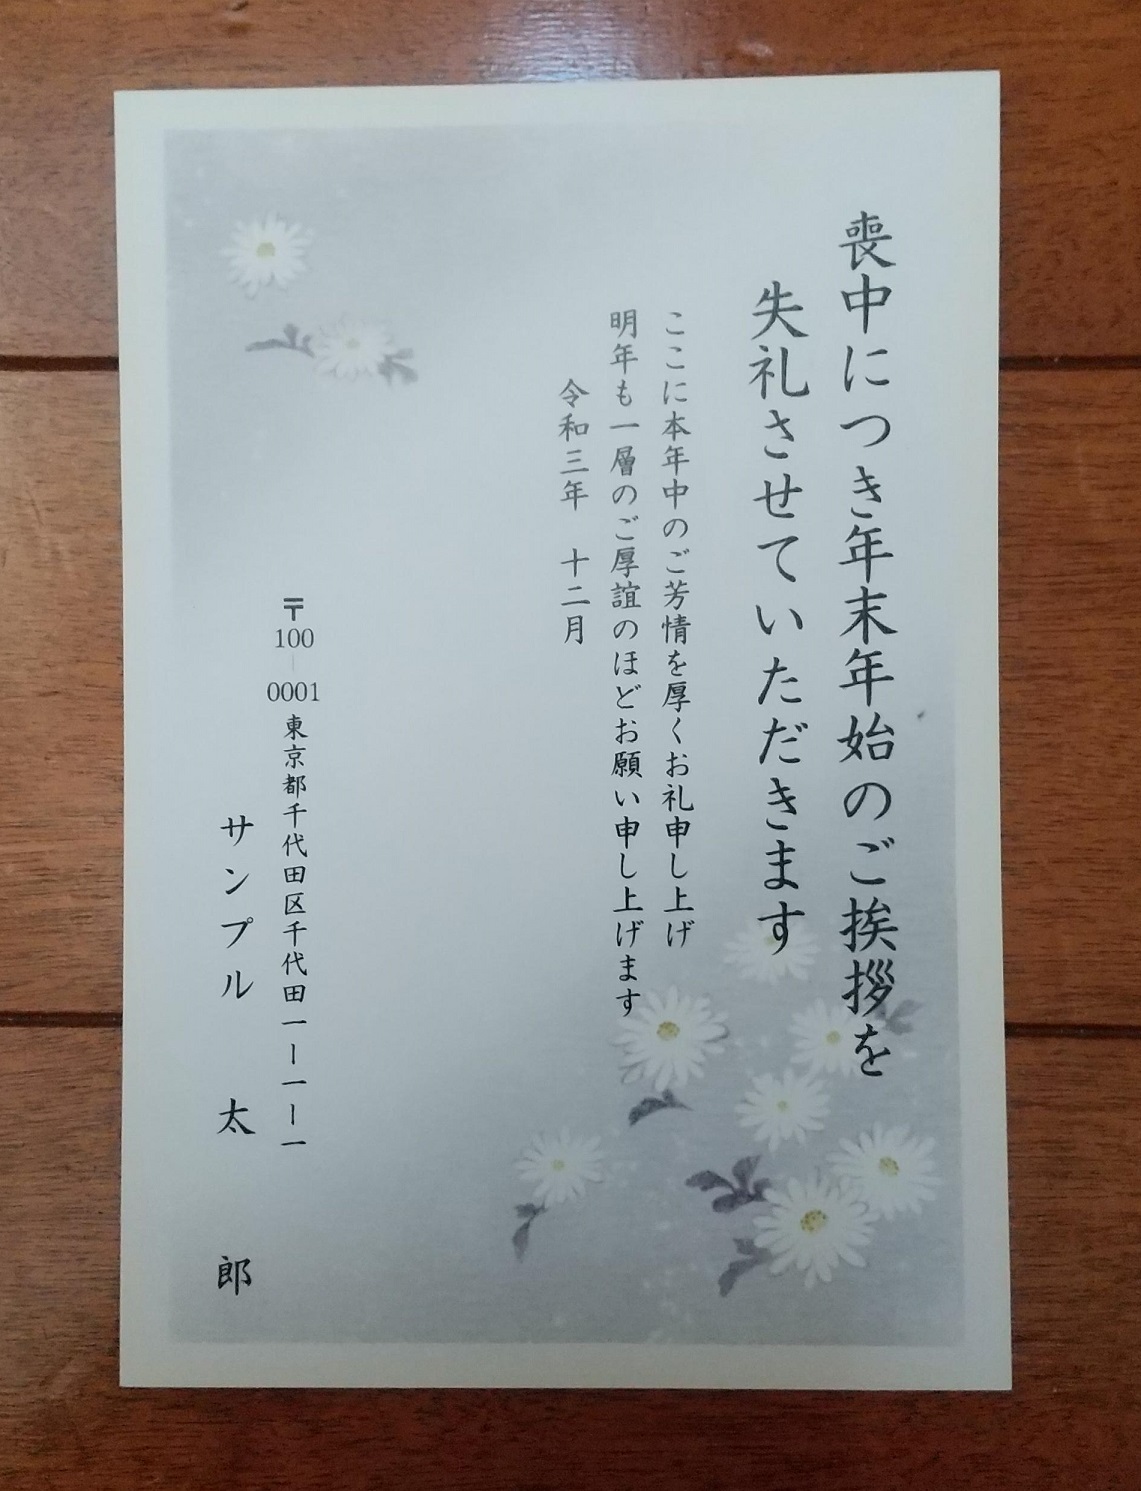 喪中につき年末年始のご挨拶を
失礼させていただきます
ここに本年中のご芳情を厚くお礼申し上げ
明年も一層のご厚誼のほどお願い申し上げます
令和三年　十二月
〒100-0001 東京都千代田区千代田一ー一ー一
サンプル　太　郎